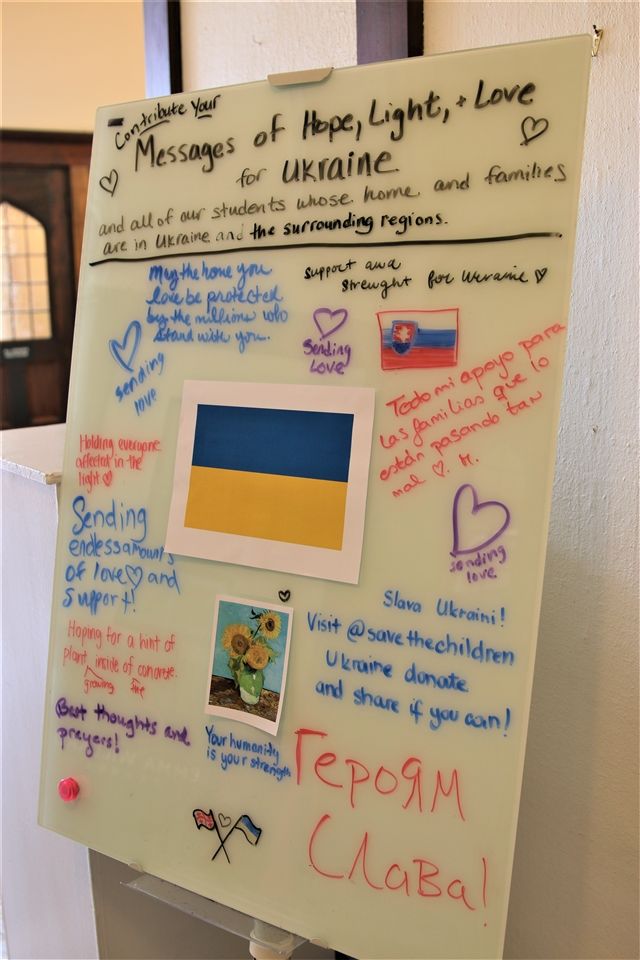 Contribute Your
Messages of Hope, Light, + Love
for Ukraine
and all of our students whose home and families
are in Ukraine and the surrounding regions.
May the home you
love be protected
by the millions who
stand with you.
Support and
Strenght for Ukraine
sending
love
Sending
Love
Todo mi apoyo para
las familias que lo
están pasando tan
mal ♡. M.
Holding everyone
affected in the
light ♡
Sending
endless amounts
of love ♡ and
support!
sending
love
Slava Ukraini!
Visit @savethechildren
Ukraine donate
and share if you can!
Hoping for a hint of
plant inside of concrete.
growing
Best thoughts and
prayers!
Your humanity
is your strength
Героям
Слава!